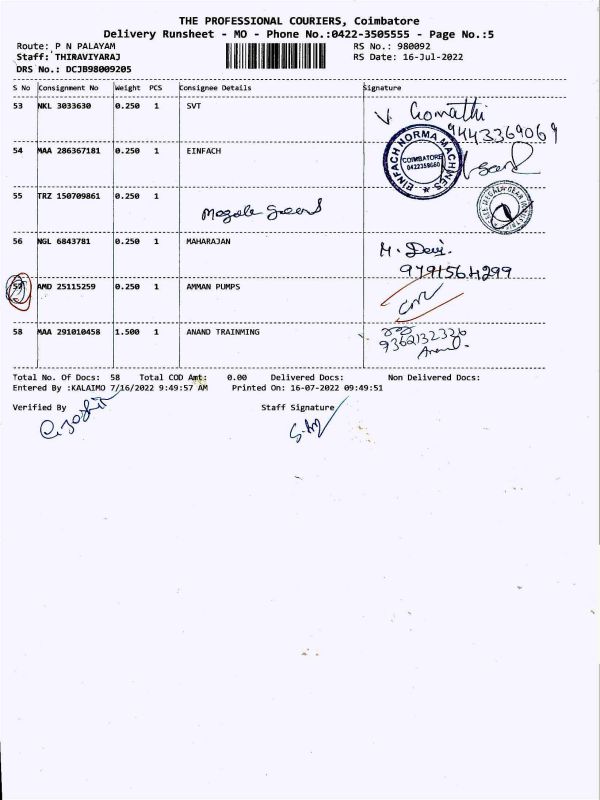 THE PROFESSIONAL COURIERS, Coimbatore
Delivery Runsheet - MO - Phone No.:0422-3505555 - Page No.:5
Route: P N PALAYAM RS No.: 980092
Staff: THIRAVIYARAJ RS Date: 16-Jul-2022
DRS No.: DCJB98009205
S No Consignment No Weight PCS Consignee Details Signature
53 NKL 3033630 0.250 1 SVT V. Gomathi
9443369069
54 MAA 286367181 0.250 1 EINFACH
EINFACH NORMA MACHINES
COIMBATORE
55 TRZ 150709861 0.250 1
56 NGL 6843781 0.250 1 MAHARAJAN M. Devi.
9791564299
57 AMD 25115259 0.250 1 AMMAN PUMPS
58 MAA 291010458 1.500 1 ANAND TRAINMING
9362132326
Anand.
Total No. Of Docs: 58 Total COD Amt: 0.00 Delivered Docs: Non Delivered Docs:
Entered By :KALAIMO 7/16/2022 9:49:57 AM Printed On: 16-07-2022 09:49:51
Verified By Staff Signature